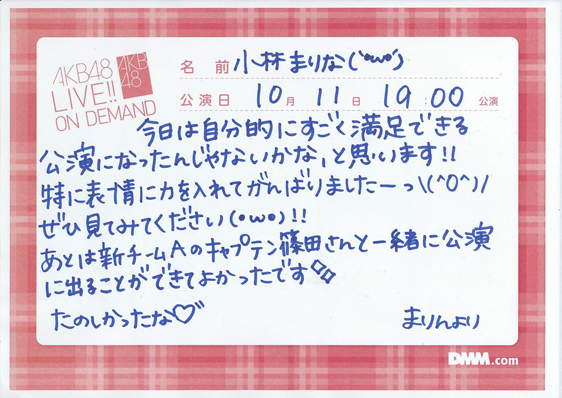 AKB48
LIVE!!
ON DEMAND
AKB
48
名 前 小林まりな(`•ω•´)
公演日 10月 11日 19:00 公演
今日は自分的にすごく満足できる
公演になったんじゃないかな、と思います!!
特に表情に力を入れてがんばりましたーっ\(^O^)/
ぜひ見てみてください(•ω•)!!
あとは新チームAのキャプテン篠田さんと一緒に公演
に出ることができてよかったです
たのしかったな♡
まりんより
DMM.com